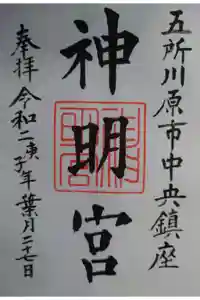 五所川原市中央鎮座
神明宮
奉拝 令和二庚子年葉月二十七日